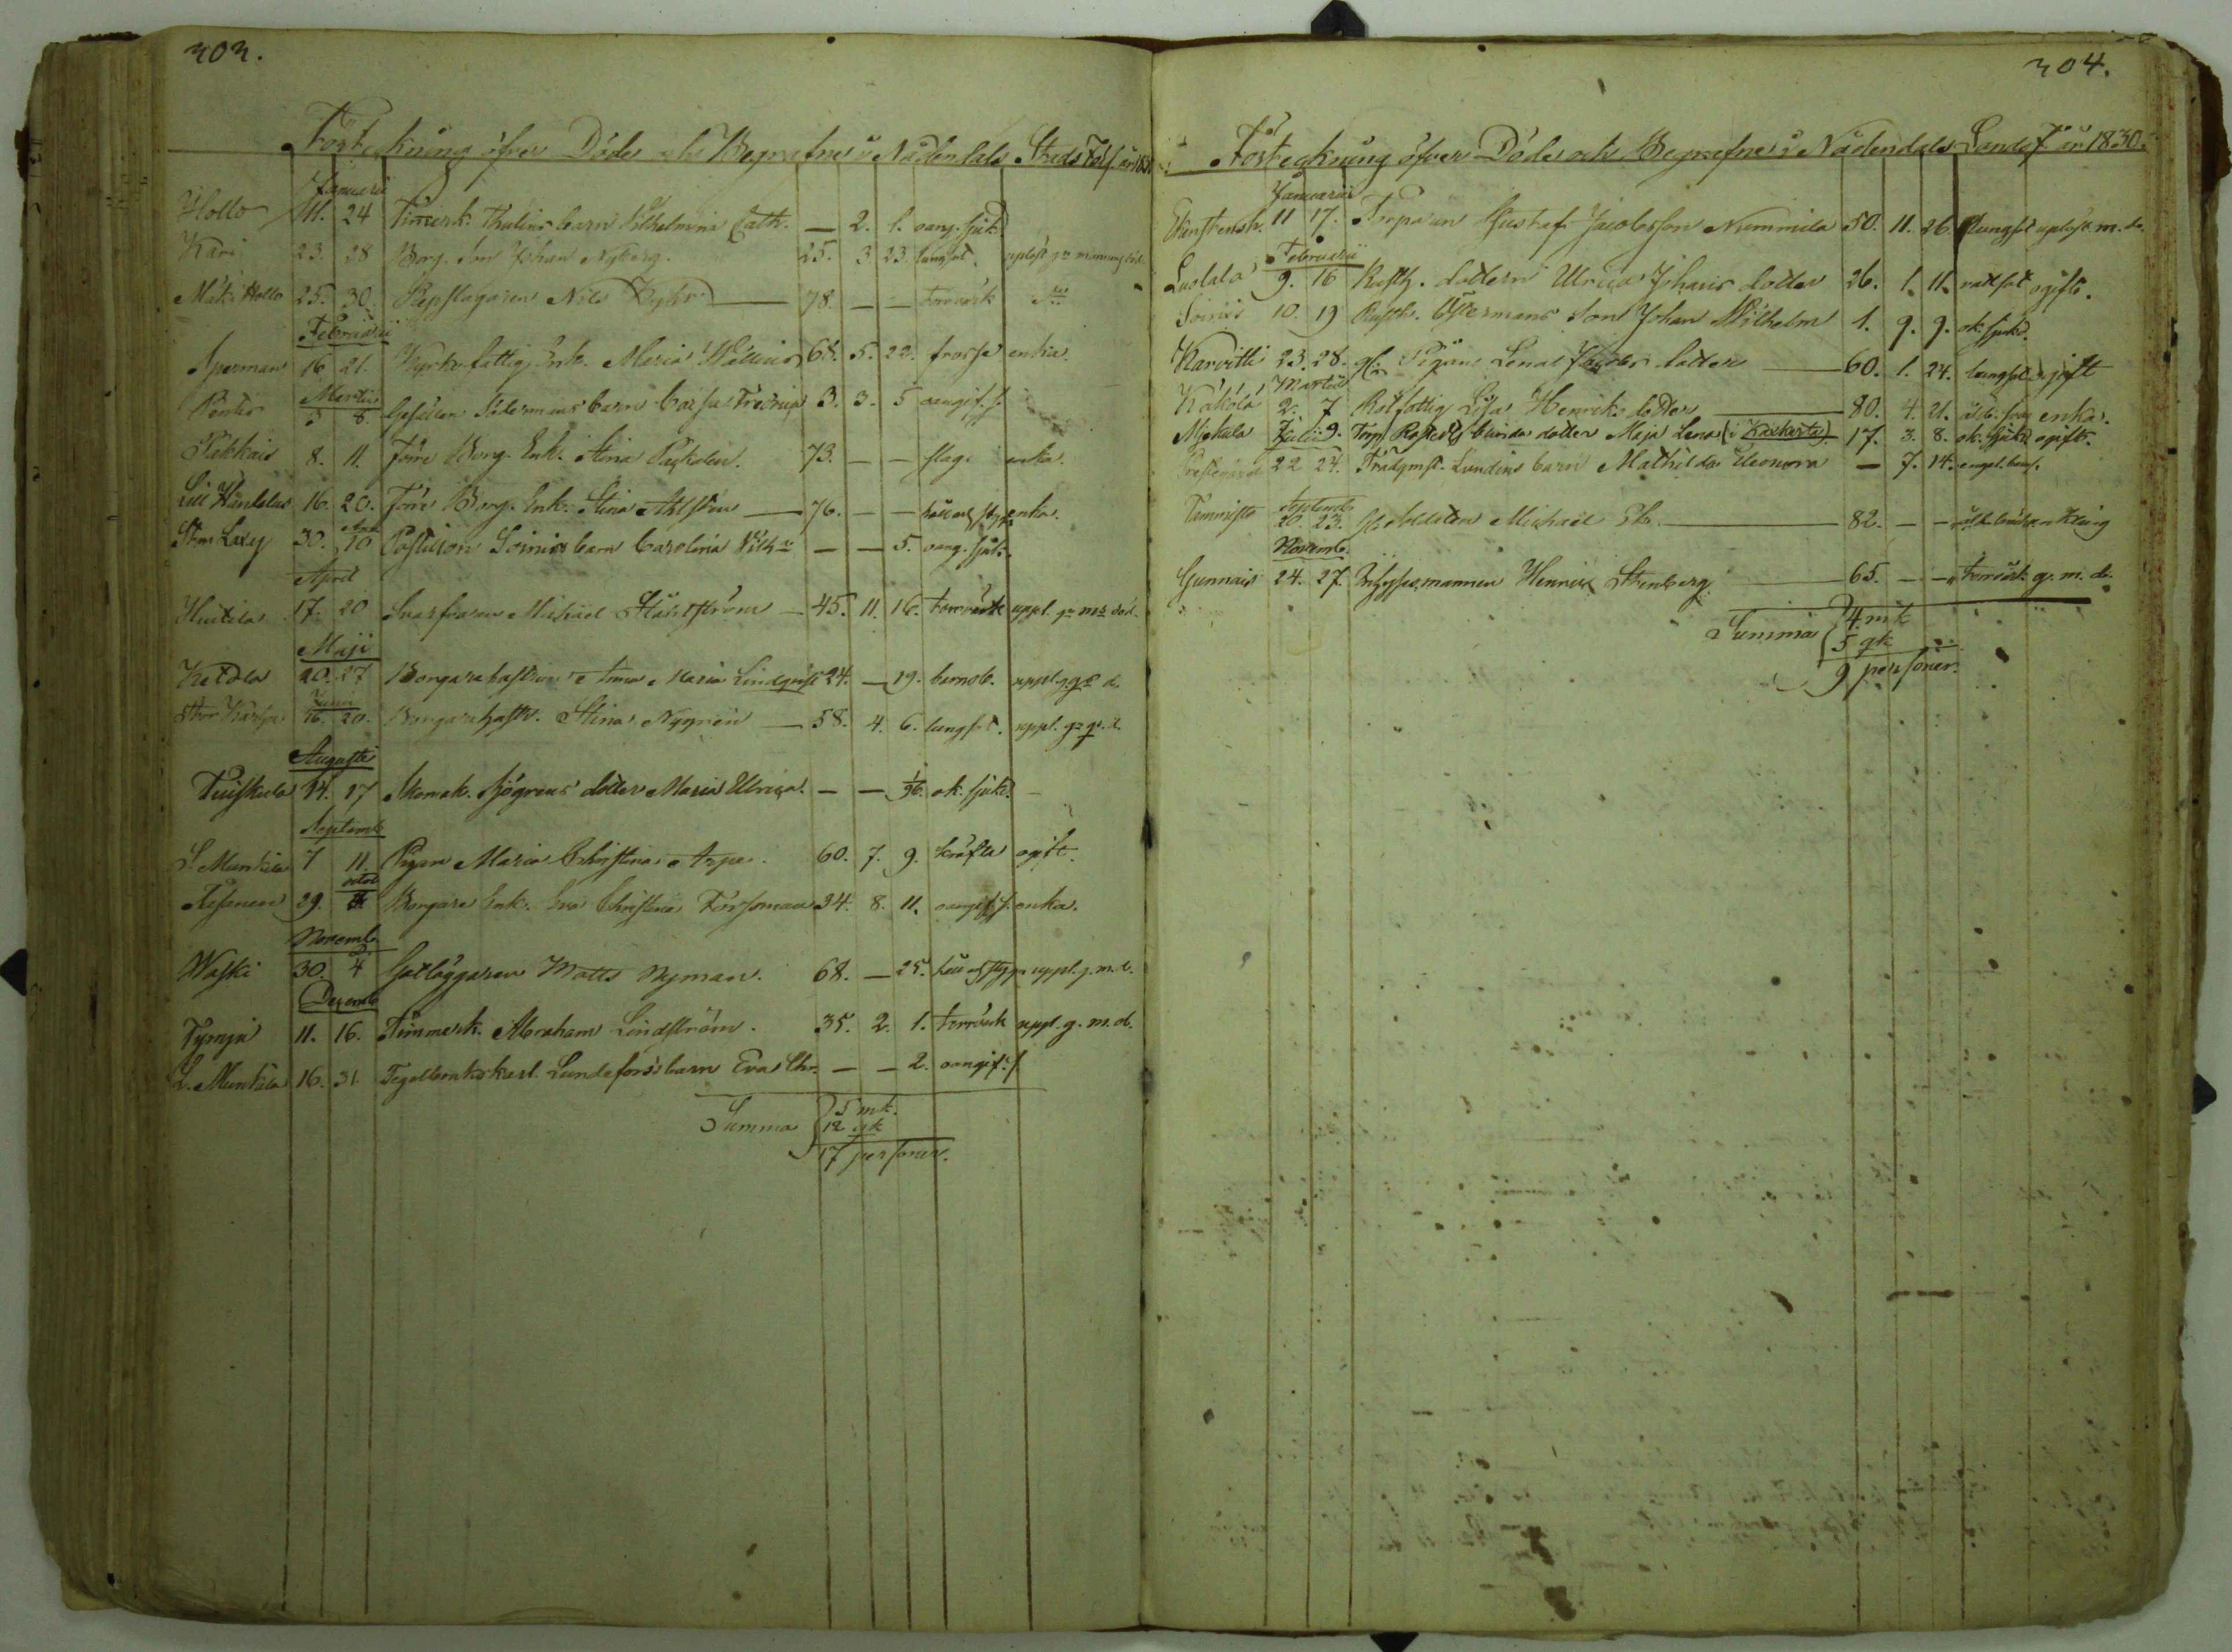 303.
Förteckning öfver Döde och Begrafne i Nådendals Stads Förs. år 1830
Januarii
Hollo 11. 24 Timerk. Thulins barn Vilhelmina Cath. — 2. 1. oang. sjuk.
Käri 23. 28 Borg. Son Johan Nyberg. 25. 3 23. lungsot. uplöst gm mannens död.
Mäki Hollo 25. 30. Repslagaren Nils — 78. — — torrvärk
Februarii
Sperman 16 21. Kyrkofattig Enk. Maria Wallius 65. 5. 22. frossa enka.
Martii
Pentis 5 8. Gesällen Södermans barn Cajsa Fredrica 3. 3. 5 oangif. s.
Pikkais 8. 11. Förre Borg. Enk. Stina 73. — — slag. enka.
Lill 16. 20. Förre Borg. Enk. Stina Ahlsten — 76. — — håll och stygn enka.
30. April 10 Postillon Soinis barn Carolina Vilh:a — — 5. oang. sjuk.
April
17. 20 Svarfvaren Michael — 45. 11. 16. torrvärk uppl. gm ms död.
Maji
Ketola 20. 27 Borgarehustrun Anna Maria Lindqvist 24. — 19. barnsb. uppl. g. qs d.
Junii
Stor 16. 20. Borgarehustr. Stina Nygrén — 58. 4. 6. lungsot. uppl. gm qs. d.
Augusti
Tuiskula 14. 17 Skomak. Sjögrens dotter Maria Ulrica. — — 1/96. ok. sjukd. —
Septemb
S. Munkila 7 11. Pigan Maria Christina Arpe. 60. 7. 9. kräfta ogift.
29. octob Borgare Enk. Eva Christina Forsman 34. 8. 11. oangif. s. enka.
Novemb.
Waski 30. D. 4 Gatläggaren Matts Nyman. 68. — 25. håll och stygn uppl. g. m. d.
Decemb
Tyrnjä 11. 16. Timmerk. Abraham Lindström. 35. 2. 1. torrvärk uppl. g. m. d.
L. Munkila 16. 31. Tegelbrukskarl. Lundefors's barn Eva Chr. — — 2. oangif. s
Summa 5 mk.
12 qk
17 personer.
304.
Förteckning öfver Döde och Begrafne i Nådendals Landsf. år 1830.
Januarii
11 17. Torparen Gustaf Jacobsson Nummila 50. 11. 26. lungsot uplöst. m. d.
Februarii
Luolala 9. 16 Rusth. dottern Ulrica Johans dotter 26. 1. 11. ogift.
Soinis 10. 19 Rusth. Östermans Son Johan Wilhelm 1. 9. 9. ok. sjukd.
Karvitti 23. 28. gl. Pigan Lena Jacobs dotter — 60. 1. 24. lungsot ogift
Martii
Kakola 2. 7 Rotfattig Lisa Henriks dotter — 80. 4. 21. enka.
Miekula Julii 9. Torp. blinda dotter Maja Lena (i Kaskerta) 17. 3. 8. ok. sjukd ogift.
22 24. Trädgmst. Lundins barn Mathilda Eleonora — 7. 14. engel.
Septemb
Tammisto 20. 23. Soldaten Michael Ek. — 82. — —
Novemb.
Gunnais 24. 27. Inhysesmannen Henrik Stenberg. — 65. — — torrvärk. g. m. d.
Summa 4. mk
5 qk
9 personer.